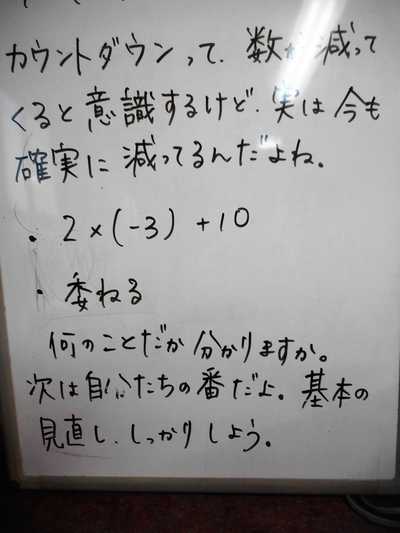 カウントダウンって、数が減って
くると意識するけど、実は今も
確実に減ってるんだよね。
・2×(-3)+10
・委ねる
何のことだか分かりますか。
次は自分たちの番だよ。基本の
見直し、しっかりしよう。